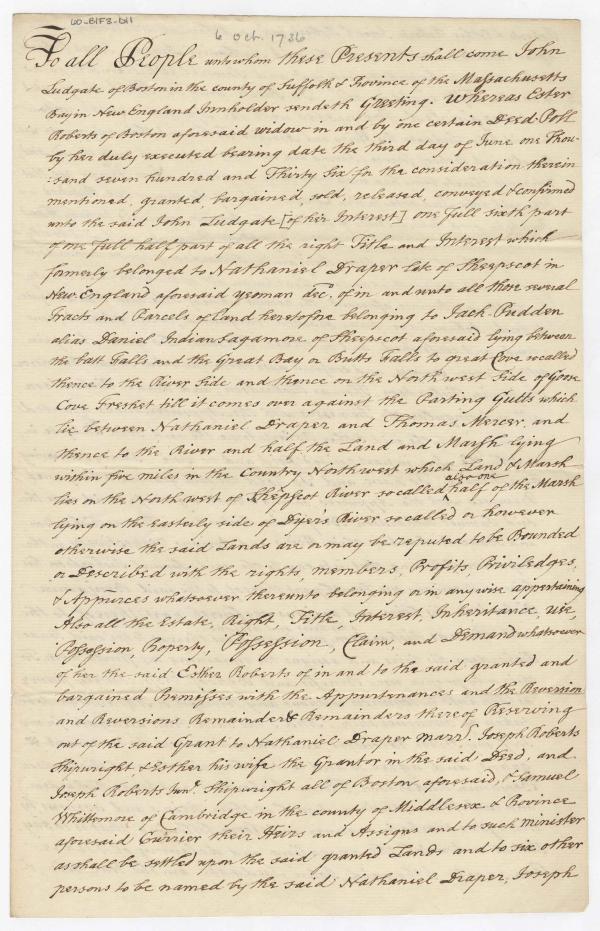 60-B1F3-D11
6 Oct. 1736
To all People unto whom these Presents shall come John
Ludgate of Boston in the county of Suffolk & Province of the Massachusetts
Bay in New England Innholder sendeth Greeting. Whereas Ester
Roberts of Boston aforesaid widow in and by one certain Deed-Poll
by her duly executed bearing date the third day of June one Thou-
:sand seven hundred and Thirty Six for the consideration therein
mentioned, granted, bargained, sold, released, conveyed & confirmed
unto the said John Ludgate [of her Interest] one full sixth part
of one full half part of all the right Title and Interest which
formerly belonged to Nathaniel Draper late of Sheepscot in
New England aforesaid yeoman decd. of in and unto all those several
Tracts and Parcels of Land heretofore belonging to Jack-Pudden
alias Daniel Indian Sagamore of Sheepscot aforesaid lying between
the last Falls and the Great Bay or Butts Falls to great Cove so called
thence to the River Side and thence on the North west side of Goose
Cove Freshet till it comes over against the Parting Gutts which
lie between Nathaniel Draper and Thomas Mercer, and
thence to the River and half the Land and Marsh lying
within five miles in the Country North west which Land & Marsh
lies on the North west of Shepscot River so called, also one half of the Marsh
lying on the Easterly side of Dyer's River so called or however
otherwise the said Lands are or may be reputed to be Bounded
or Described with the rights, members, Profits, Priviledges,
& Appurces whatsoever thereunto belonging or in any wise appertaining
Also all the Estate, Right, Title, Interest, Inheritance, use,
Possession, Property, Possession, Claim, and Demand whatsoever
of her the said Esther Roberts of in and to the said granted and
bargained Premisses with the Appurtenances and the Reversion
and Reversions Remainder & Remainders thereof Reserving
out of the said Grant to Nathaniel Draper marr. Joseph Roberts
Shipwright, & Esther his wife the Grantor in the said Deed, and
Joseph Roberts Junr. Shipwright all of Boston aforesaid, & Samuel
Whittemore of Cambridge in the county of Middlesex & Province
aforesaid Currier their Heirs and Assigns and to such minister
as shall be settled upon the said granted Lands and to six other
persons to be named by the said Nathaniel Draper, Joseph